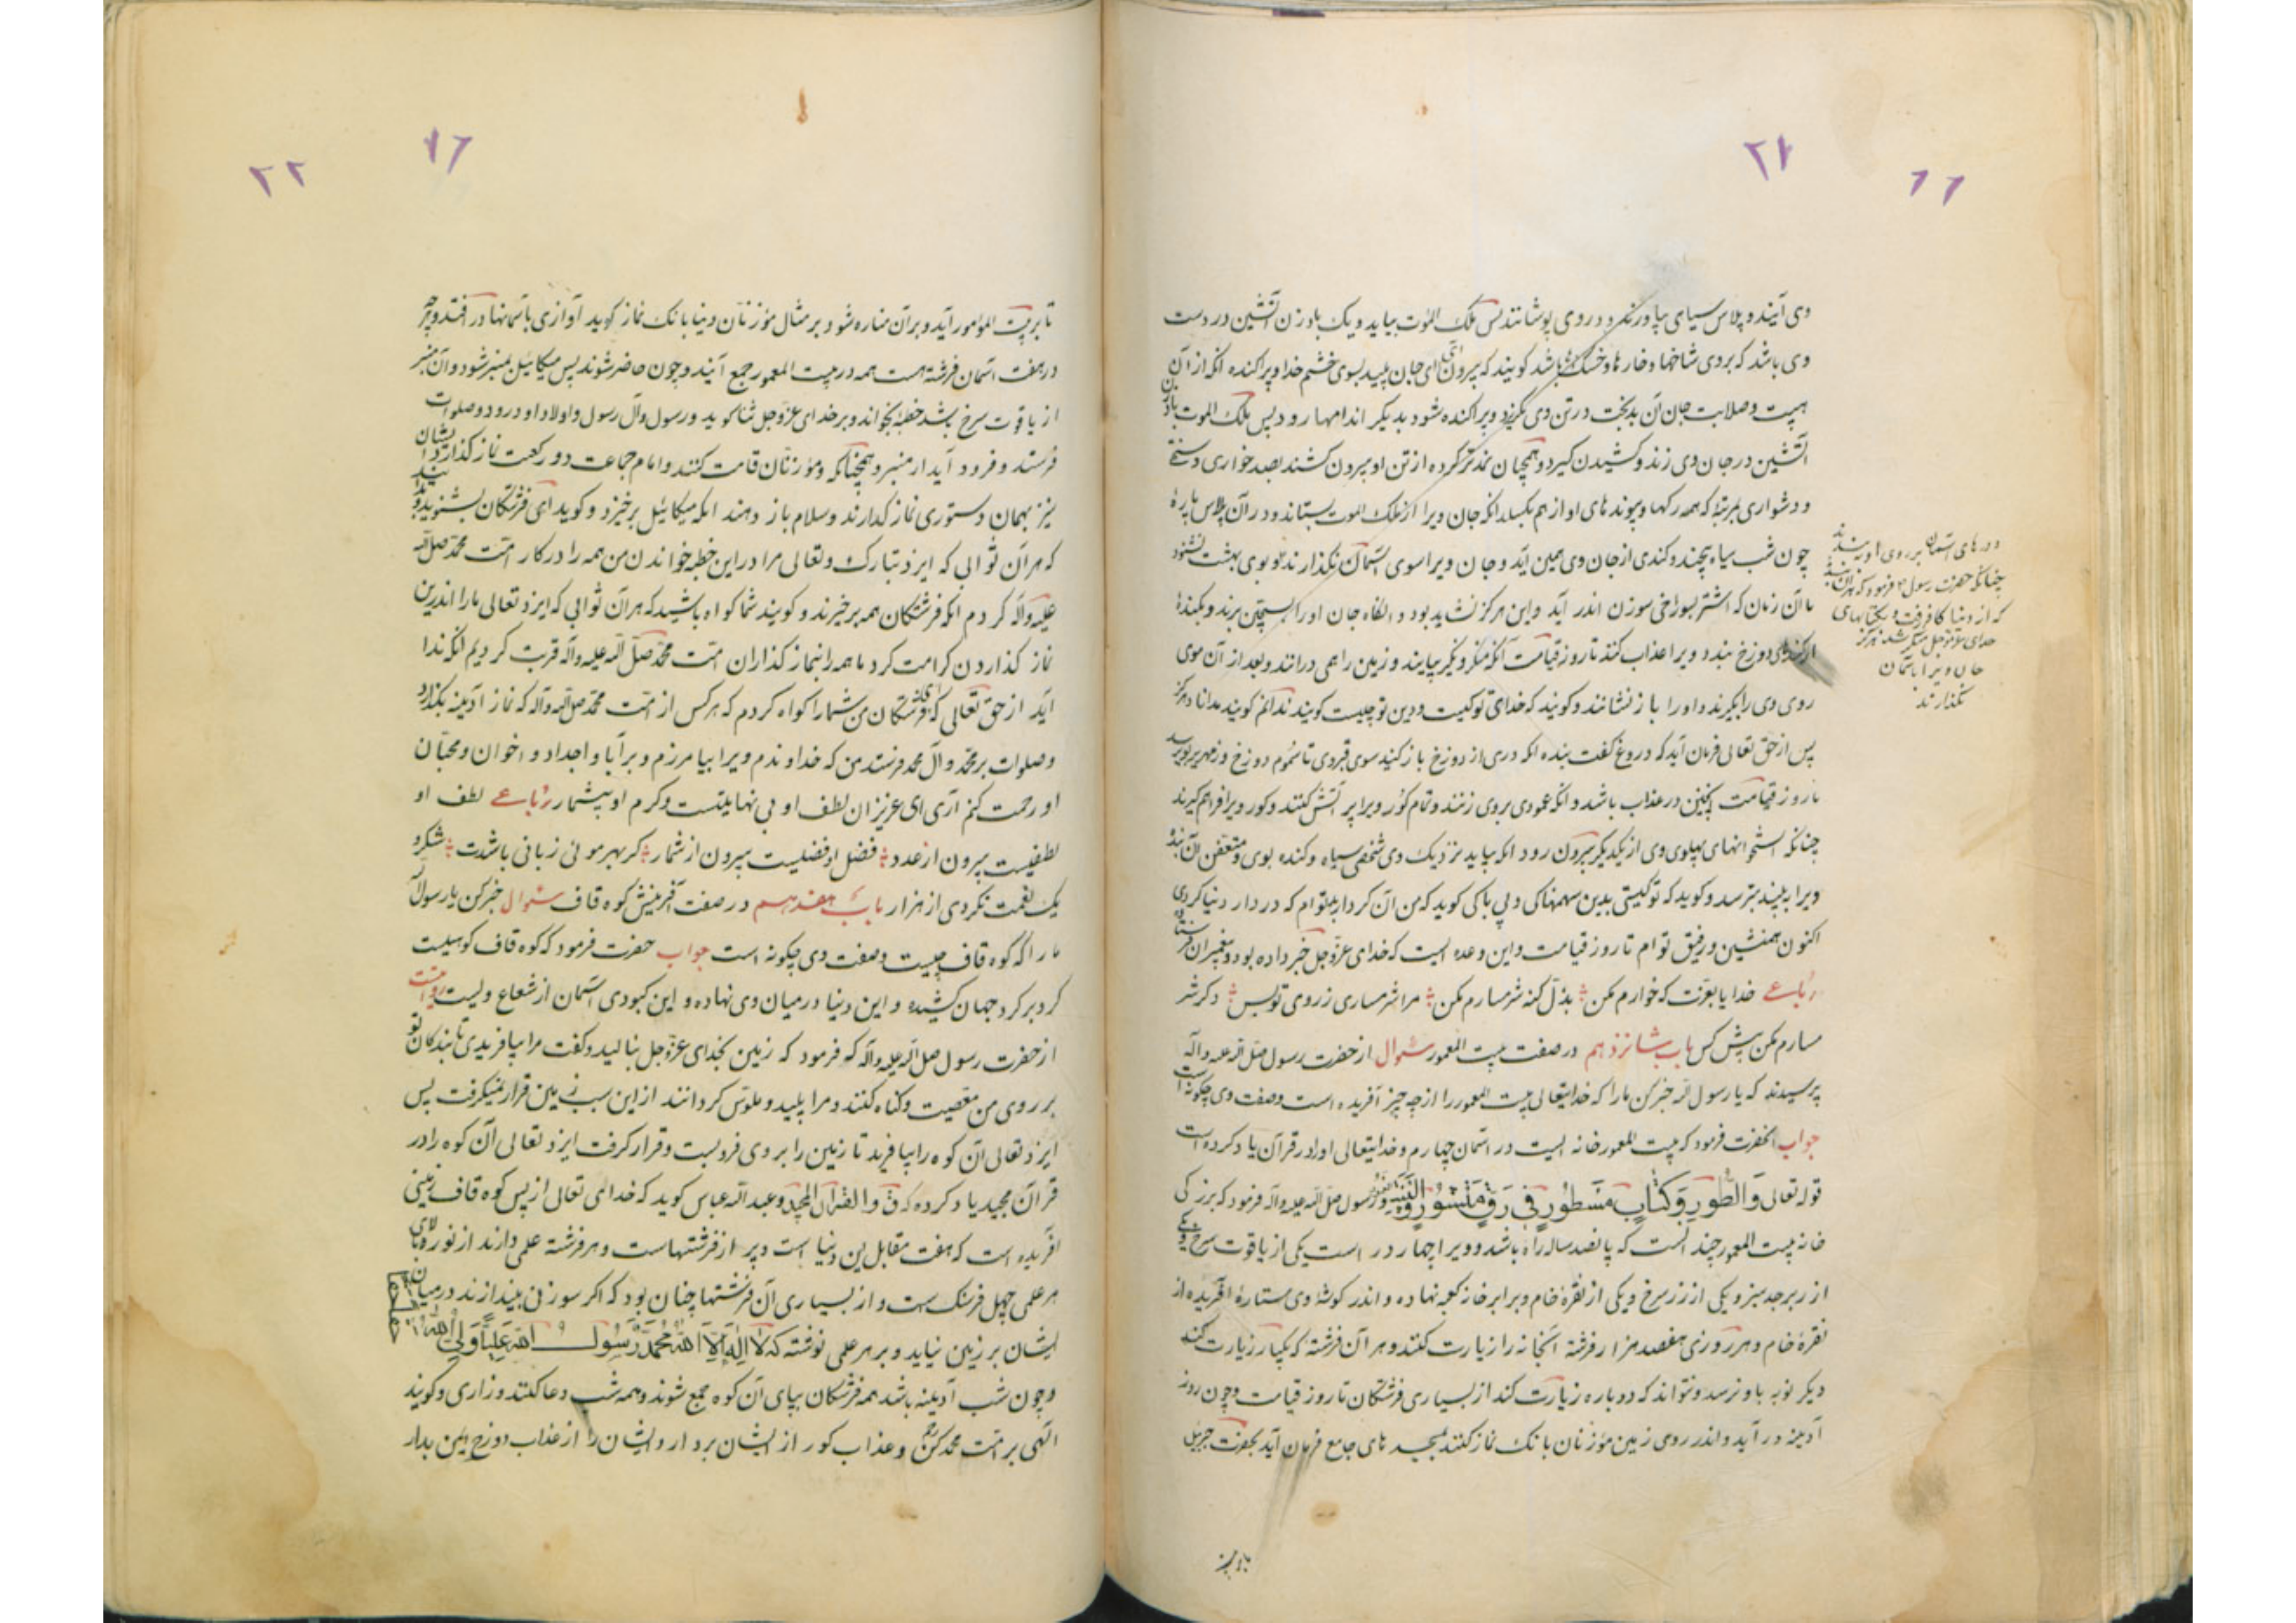 ۲۱
۱۶
وی آیند و پلاس سیاه بیاورند و در وی پوشانند پس ملک الموت بیاید و یک بادزن آتشین در دست
وی باشد که بروی شاخها و خارها و خسک باشد گویند که بیرون آی ای جان پلید بسوی خشم خدا و پراکنده انکه از آن
هیبت و صلابت جان آن بدبخت در تن وی بگریزد و پراکنده شود بدیگر اندامها رود پس ملک الموت
آتشین در جان وی زند و کشیدن گیرد و همچنان نمد تر کرده از تن او بیرون کشند بصد خواری و سختی
و دشواری بمرتبۀ که همه رکها و پیوندهای او از هم بکسلد انکه جان ویرا از ملک الموت بستاند و در آن پلاس پارۀ
چون شب سیاه پیچند و کندی از جان وی همین آید و جان ویرا سوی آسمان نگذارند و بوی بهشت نشنود
تا آن زمان که اشتر بسوراخی سوزن اندر آید و این هرکز نشاید بود و انکاه جان او را بسجین برند و بکندۀ
از کندهای دوزخ بندد ویرا عذاب کند تا روز قیامت آنکه منکر و نکیر بیایند و زمین را همی درانند و بعد از آن موی
روی وی را بگیرند و او را باز نشانند و گویند که خدای تو کیست و دین تو چیست گوید ندانم گویند مدانا و هرکز
پس از حق تعالی فرمان آید که دروغ گفت بنده انکه دری از دوزخ باز کنید سوی قبر وی تا سموم دوزخ و زمهریر بوی رسد
تا روز قیامت اینچنین در عذاب باشد و انکه عمودی بروی زنند و تمام کور ویرا پر آتش کنند و کور ویرا فراهم گیرند
چنانکه استخوانهای پهلوی وی از یکدیگر بیرون رود انکه بیاید نزدیک وی شخصی سیاه و کنده بوی و متعفن آن بنده
ویرا به بیند بترسد و گوید که تو کیستی بدین سهمناکی و بی باکی گوید که من آن کردار بد توام که در دار دنیا کردی
اکنون همنشین و رفیق توام تا روز قیامت و این وعده ایست که خدای عزوجل خبر داده بود و پیغمبران فرستاده
رباعی خدایا بعزت که خوارم مکن بذل کنه شرمسارم مکن مرا شرمساری ز روی تو بس دکر شر
مسارم مکن پیش کس باب شانزدهم در صفت بیت المعمور سئوال از حضرت رسول صلی الله علیه و آله
پرسیدند که یا رسول الله خبر کن ما را که خدایتعالی بیت المعمور را از چه چیز آفریده است و صفت وی چگونه است
جواب انحضرت فرمود که بیت المعمور خانه ایست در آسمان چهارم و خدایتعالی او را در قرآن یاد کرده است
قوله تعالی وَالطُّورِ وَكِتَابٍ مَسْطُورٍ فِي رَقٍّ مَنْشُورٍ رسول صلی الله علیه و آله فرمود که بزرکی
خانه بیت المعمور چند انست که پانصد ساله راه باشد و ویرا چهار در است یکی از یاقوت سرخ و یکی
از زبرجد سبز و یکی از زر سرخ و یکی از نقرۀ خام و برابر خانه کعبه نهاده و اندر کوشۀ وی ستارۀ آفریده از
نقرۀ خام و هر روزی هفصد هزار فرشته آنخانه را زیارت کنند و هر آن فرشته که یکبار زیارت کند
دیکر نوبه باو نرسد و نتواند که دوباره زیارت کند از بسیاری فرشتگان تا روز قیامت و چون روز
آدینه در آید و اندر روی زمین مؤذنان بانک نماز کنند بمسجدهای جامع فرمان آید بحضرت جبریل
و درهای آسمان بر روی او ببندند
چنانکه حضرت رسول فرمود که هر آن بنده
که از دنیا کافر رفت و بکتابهای
خدای عزوجل منکر شد هرکز
جان ویرا باسمان
نکذارند
۲۲
۱۶
تا بر بیت المعمور آید و بر آن مناره شود و بر مثال مؤذنان دنیا بانک نماز کوید آوازی باسمانها در افتد و هرچه
در هفت آسمان فرشته هست همه در بیت المعمور جمع آیند و چون حاضر شوند پس میکائیل بمنبر شود و آن منبر
از یاقوت سرخ باشد خطبه بخواند و بر خدای عزوجل ثنا کوید و رسول و آل رسول و اولاد او درود و صلوات
فرستد و فرود آید از منبر و همچنانکه مؤذنان قامت کنند و امام جماعت دو رکعت نماز کذارد ایشان
نیز بهمان دستوری نماز کذارند و سلام باز دهند انکه میکائیل برخیزد و کوید ای فرشتکان بشنوید و
که هر آن ثوابی که ایزد تبارک و تعالی مرا در این خطبه خواندن من همه را در کار امت محمد صلی الله
علیه و آله کردم انکه فرشتکان همه برخیزند و کویند شما کواه باشید که هر آن ثوابی که ایزد تعالی ما را اندرین
نماز کذاردن کرامت کرد ما همه را بنماز کذاران امت محمد صلی الله علیه و آله قربت کردیم انکه ندا
آید از حق تعالی که ای فرشتکان من شما را کواه کردم که هر کس از امت محمد صلی الله و آله که نماز آدینه بکذارد
و صلوات بر محمد و آل محمد فرستد من که خداوندم ویرا بیامرزم و بر آبا و اجداد و اخوان و محبان
او رحمت کنم آری ای عزیزان لطف او بی نهایتست و کرم او بیشمار رباعی لطف او
لطفیست بیرون از عدد فضل او فضلیست بیرون از شمار کر بهر موئی زبانی باشدت شکر
یک نعمت نکردی از هزار باب هفدهم در صفت آفرینش کوه قاف سئوال خبر کن یا رسول الله
ما را که کوه قاف چیست و صفت وی چگونه است جواب حضرت فرمود که کوه قاف کوهیست
کرد بر کرد جهان کشیده و این دنیا در میان وی نهاده و این کبودی آسمان از شعاع ویست روایت
از حضرت رسول صلی الله علیه و آله که فرمود که زمین بخدای عزوجل بنالید و گفت مرا بیافریدی تا بندکان تو
بر روی من معصیت و کناه کنند و مرا پلید و ملوس کردانند از این سبب زمین قرار نمیکرفت پس
ایزد تعالی آن کوه را بیافرید تا زمین را بر وی فرو بست و قرار گرفت ایزد تعالی آن کوه را در
قرآن مجید یاد کرده که ق والقرآن المجید و عبدالله عباس کوید که خدای تعالی از پس کوه قاف زمینی
آفریده است که هفت مقابل این دنیا است و پر از فرشتهاست و هر فرشته علمی دارند از نور بالای
هر علمی چهل فرسنک است و از بسیاری آن فرشتها چنان بود که اگر سوزنی بیندازند در میان
ایشان بر زمین نیاید و بر هر علمی نوشته که لَا اِلٰهَ اِلَّا اللّٰهُ مُحَمَّدٌ رَسُولُ اللّٰهِ عَلِيًّا وَلِيُّ اللّٰهِ
و چون شب آدینه باشد همه فرشتکان بپای آن کوه جمع شوند و همه شب دعا کنند و زاری و کویند
الهی بر امت محمد رحم کن و عذاب کور از ایشان بردار و ایشان را از عذاب دوزخ ایمن بدار